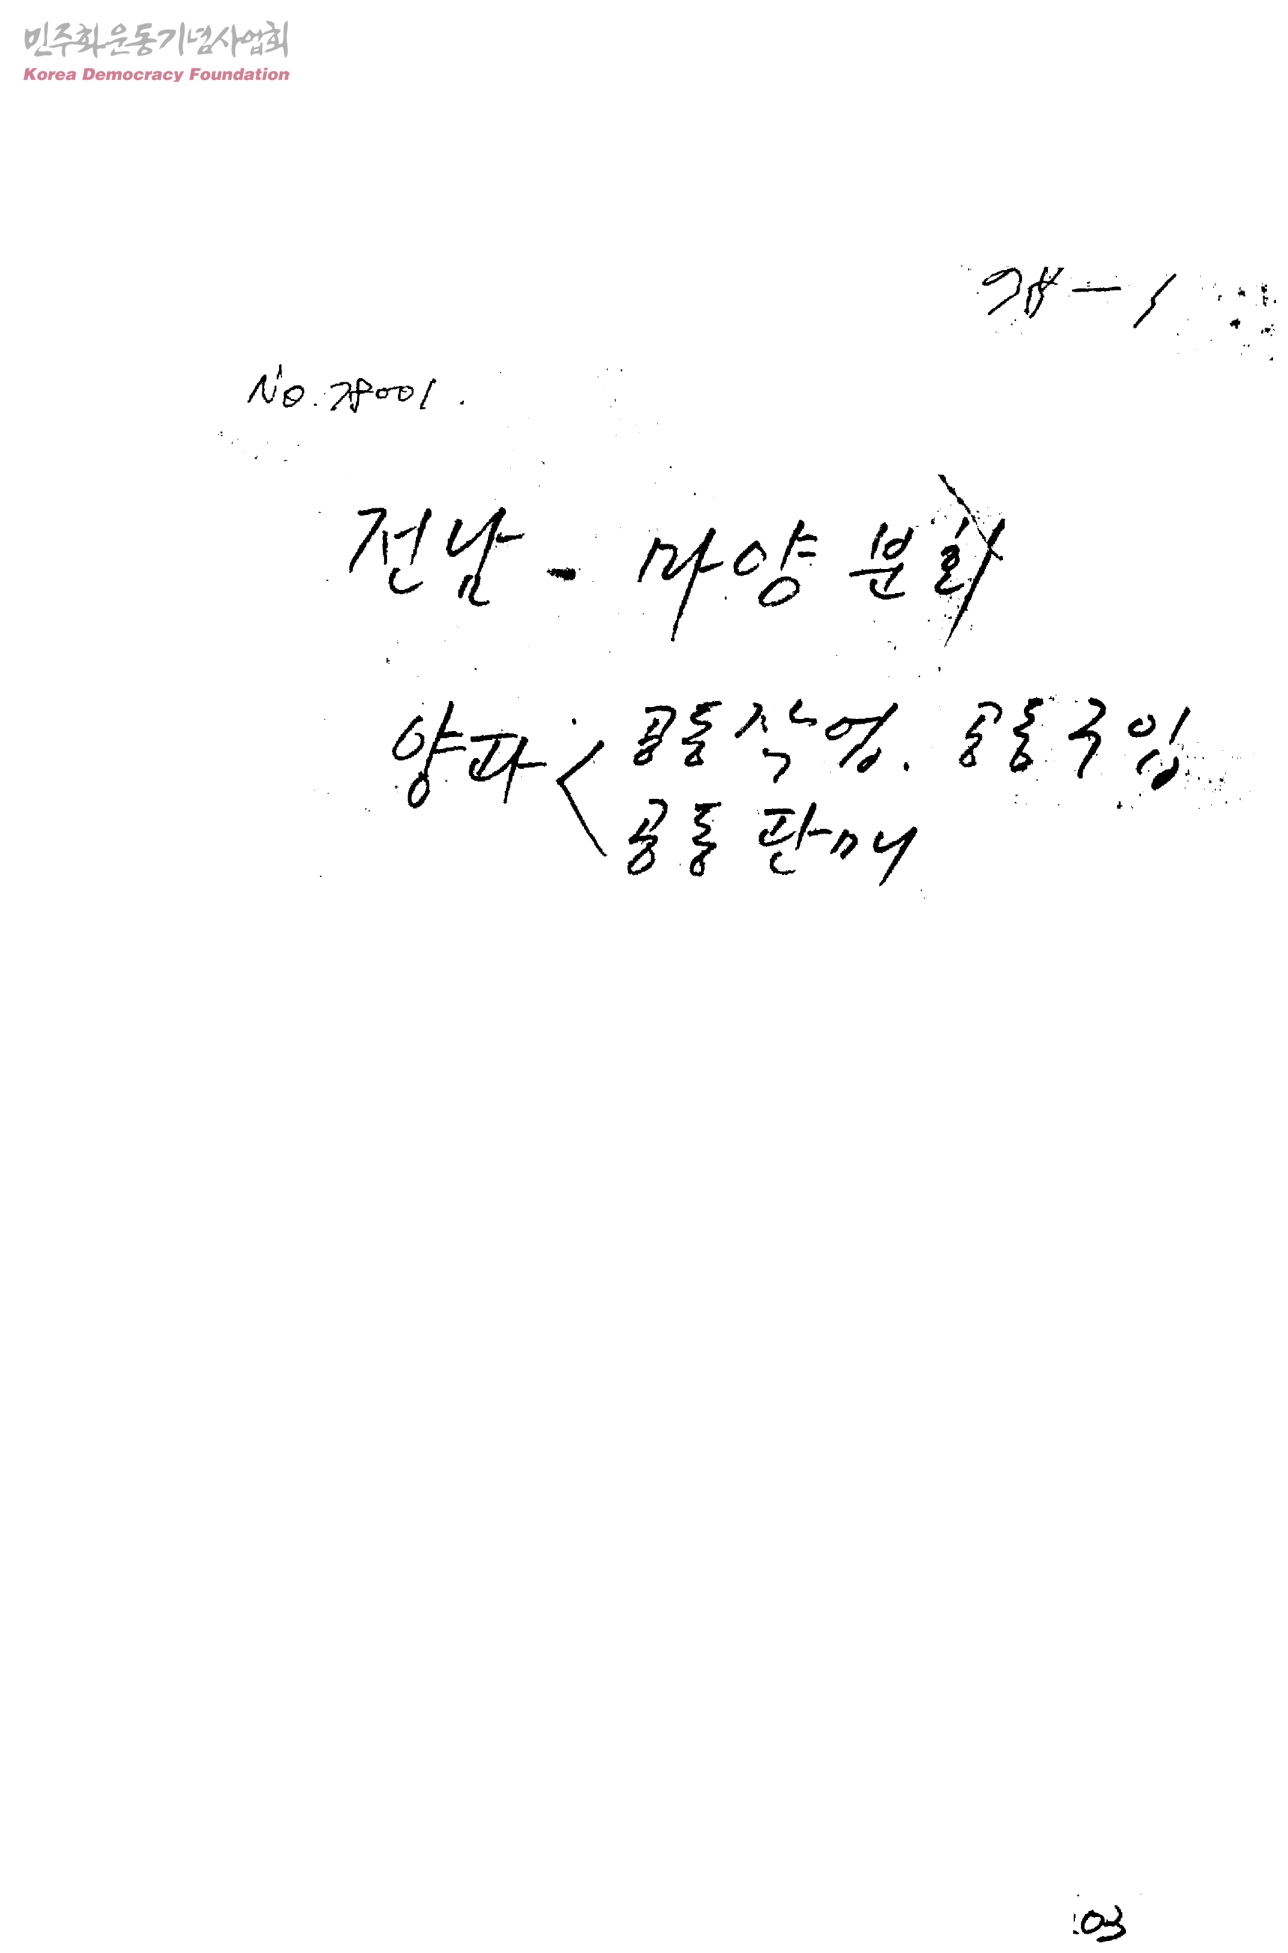 민주화운동기념사업회
Korea Democracy Foundation
No. 78001.
전남 - 마양 분회
양파 < 공동작업. 공동구입
공동 판매
03